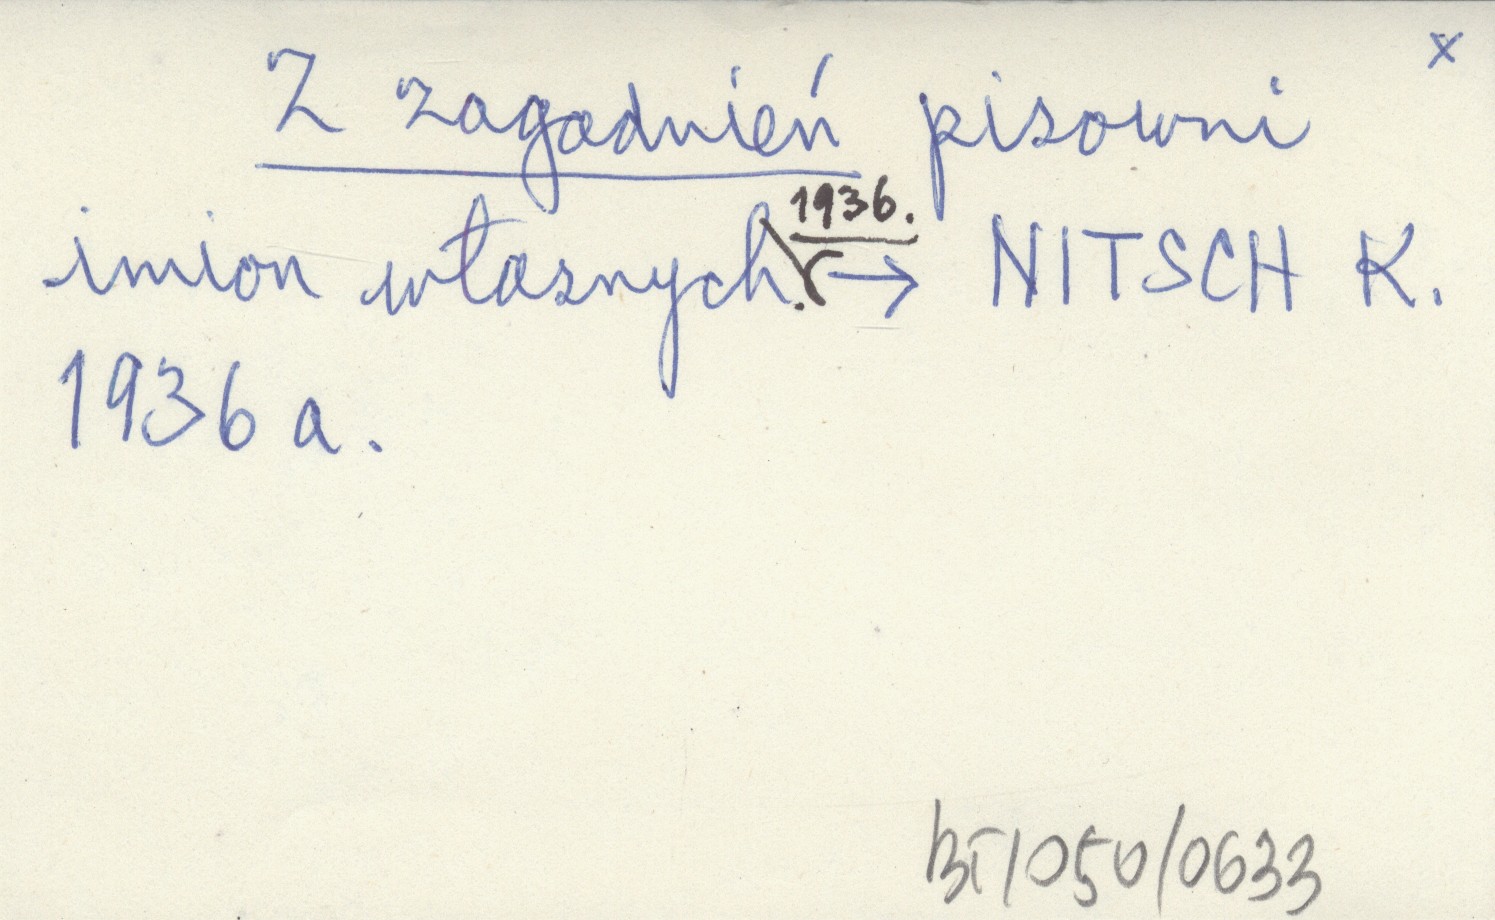 x
Z zagadnień pisowni
imion własnych. 1936. → NITSCH K.
1936 a.
BI/050/0633